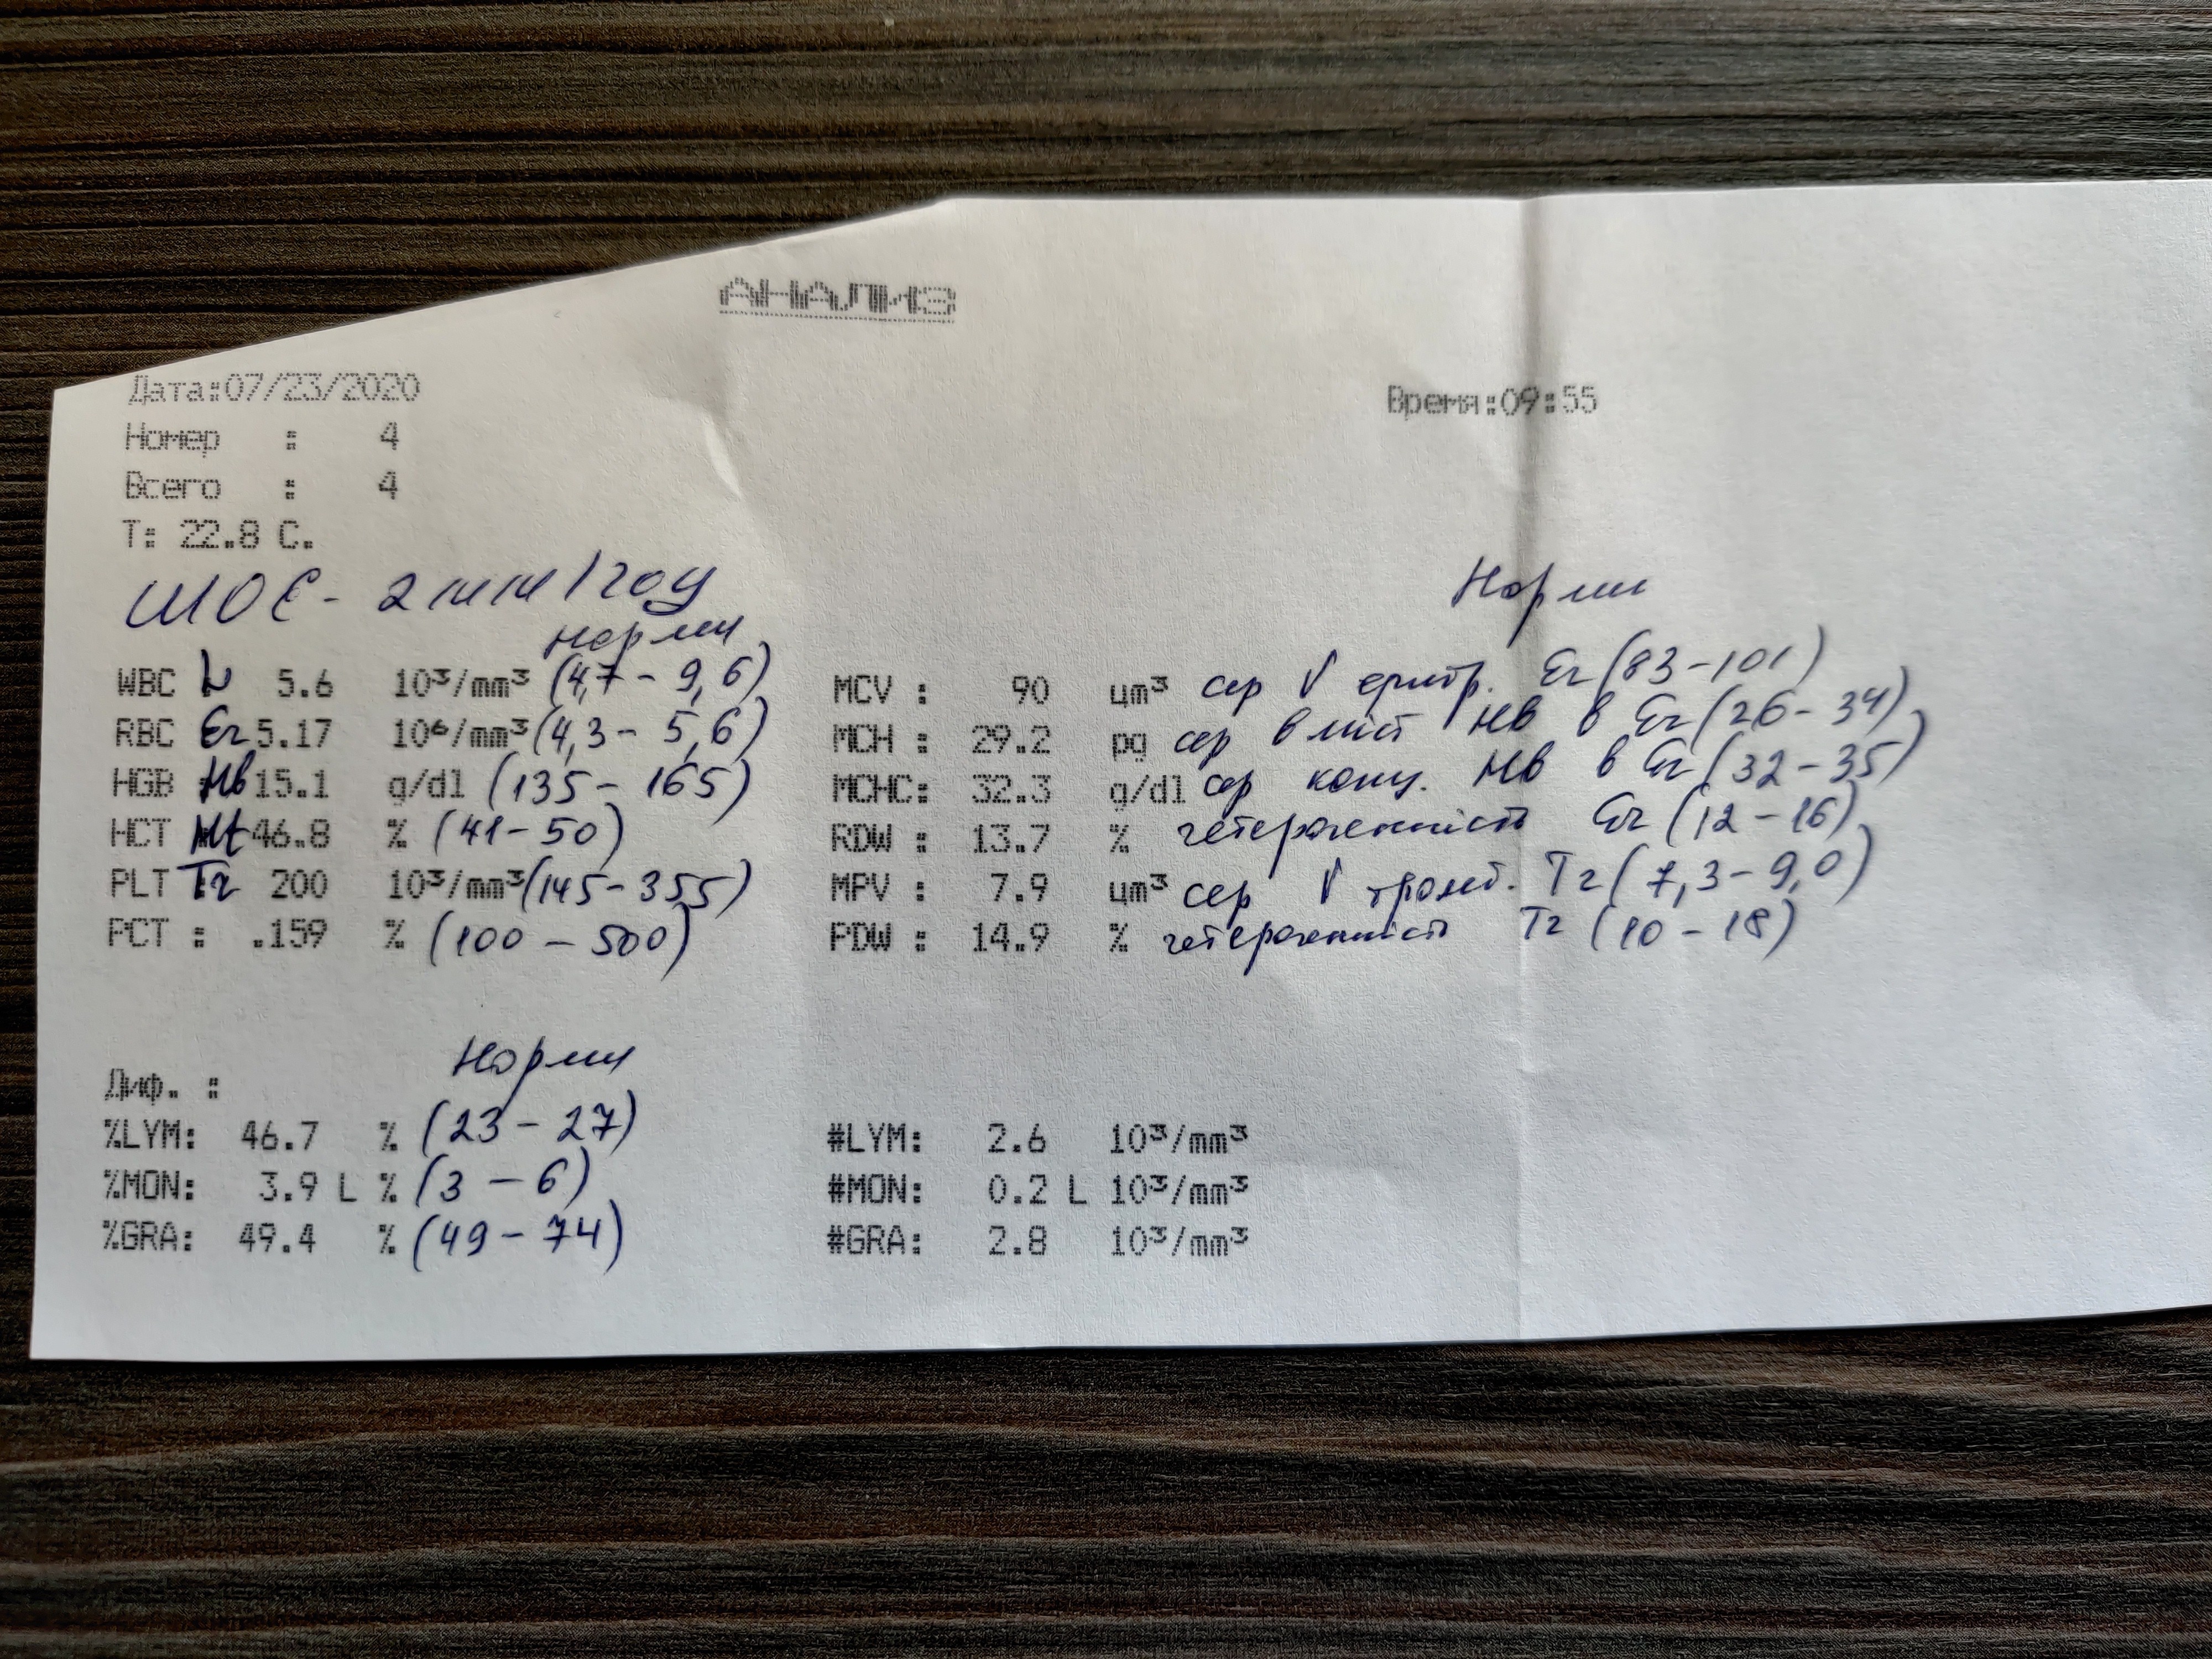 АНАЛИЗ
Дата:07/23/2020 Время:09:55
Номер : 4
Всего : 4
T: 22.8 C.
ШОЕ - 2 мм/год
Норми Норми
WBC L 5.6 10³/mm³ (4,7 - 9,6) MCV : 90 µm³ сер V еритр. Er (83-101)
RBC Er 5.17 10⁶/mm³ (4,3 - 5,6) MCH : 29.2 pg сер вміст Hb в Er (26-34)
HGB Hb 15.1 g/dl (135 - 165) MCHC: 32.3 g/dl сер конц. Hb в Er (32-35)
HCT Ht 46.8 % (41-50) RDW : 13.7 % гетерогенність Er (12-16)
PLT Tr 200 10³/mm³ (145-355) MPV : 7.9 µm³ сер V тромб. Tr (7,3-9,0)
PCT : .159 % (100 - 500) PDW : 14.9 % гетерогенність Tr (10-18)
Норми
Диф. :
%LYM: 46.7 % (23 - 27) #LYM: 2.6 10³/mm³
%MON: 3.9 L % (3 - 6) #MON: 0.2 L 10³/mm³
%GRA: 49.4 % (49 - 74) #GRA: 2.8 10³/mm³